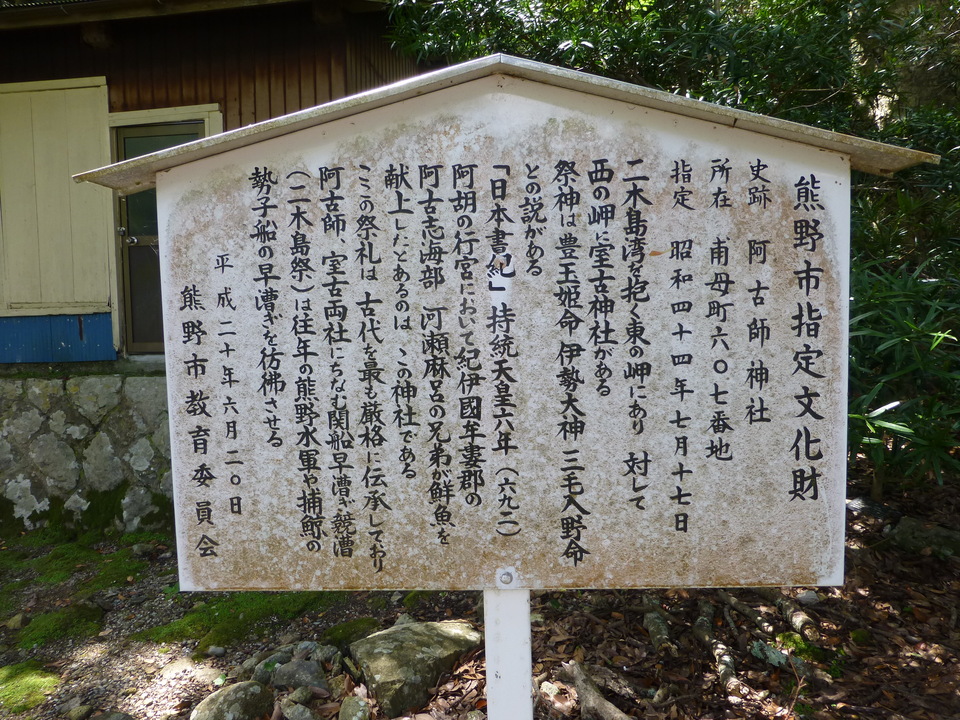 熊野市指定文化財
史跡 阿古師神社
所在 甫母町六〇七番地
指定 昭和四十四年七月十七日
二木島湾を抱く東の岬にあり 対して
西の岬に室古神社がある
祭神は 豊玉姫命 伊勢大神 三毛入野命
との説がある
「日本書紀」持統天皇六年(六九二)
阿胡の行宮において紀伊國牟婁郡の
阿古志海部 河瀬麻呂の兄弟が鮮魚を
献上したとあるのは この神社である
ここの祭礼は 古代を最も厳格に伝承しており
阿古師、室古両社にちなむ関船早漕ぎ競漕
(二木島祭)は往年の熊野水軍や捕鯨の
勢子船の早漕ぎを彷彿させる
平成二十年六月二〇日
熊野市教育委員会